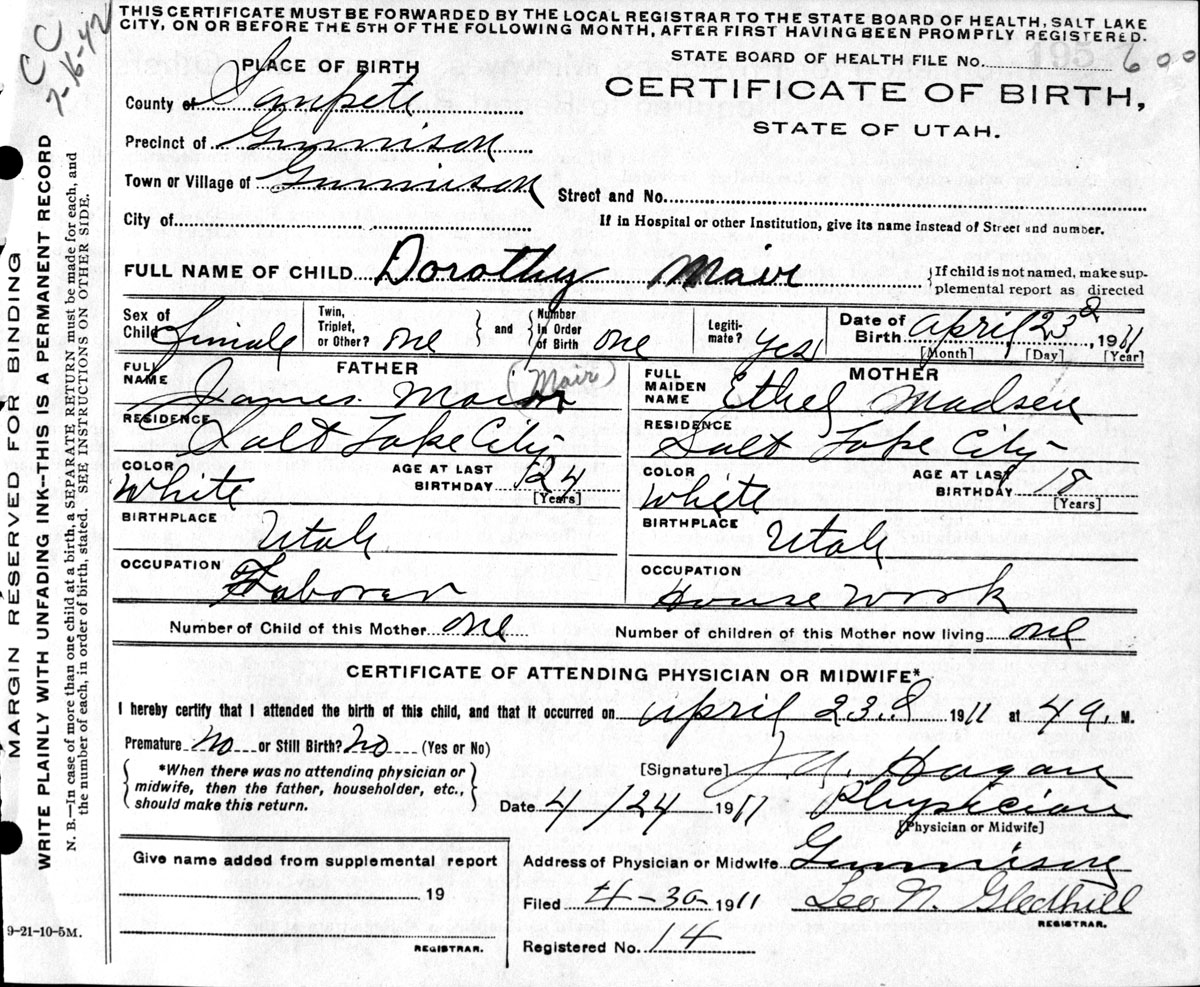 THIS CERTIFICATE MUST BE FORWARDED BY THE LOCAL REGISTRAR TO THE STATE BOARD OF HEALTH, SALT LAKE
CITY, ON OR BEFORE THE 5TH OF THE FOLLOWING MONTH, AFTER FIRST HAVING BEEN PROMPTLY REGISTERED.
CC
7-16-42
STATE BOARD OF HEALTH FILE No. 600
PLACE OF BIRTH
CERTIFICATE OF BIRTH,
STATE OF UTAH.
County of Sanpete
Precinct of Gunnison
Town or Village of Gunnison
Street and No.
City of
If in Hospital or other Institution, give its name instead of Street and number.
FULL NAME OF CHILD Dorothy Mair
{If child is not named, make sup-
plemental report as directed
Sex of Child Female
Twin, Triplet, or Other? one } and { Number in Order of Birth one
Legiti-mate? yes
Date of Birth April 23d, 1911
[Month] [Day] [Year]
FATHER
FULL NAME James Mair (Mair)
RESIDENCE Salt Lake City
COLOR White
AGE AT LAST BIRTHDAY 24 [Years]
BIRTHPLACE Utah
OCCUPATION Laborer
MOTHER
FULL MAIDEN NAME Ethel Madsen
RESIDENCE Salt Lake City
COLOR White
AGE AT LAST BIRTHDAY 18 [Years]
BIRTHPLACE Utah
OCCUPATION House work
Number of Child of this Mother one
Number of children of this Mother now living one
CERTIFICATE OF ATTENDING PHYSICIAN OR MIDWIFE*
I hereby certify that I attended the birth of this child, and that it occurred on April 23.d 1911 at 4 a. M.
Premature no or Still Birth? no (Yes or No)
{ *When there was no attending physician or
midwife, then the father, householder, etc.,
should make this return. }
[Signature] Hagan
Date 4/24 1911 Physician
[Physician or Midwife]
Give name added from supplemental report
19
REGISTRAR.
Address of Physician or Midwife Gunnison
Filed 4-30- 1911 Leo N. Gledhill
REGISTRAR.
Registered No. 14
9-21-10-5M.
MARGIN RESERVED FOR BINDING
WRITE PLAINLY WITH UNFADING INK--THIS IS A PERMANENT RECORD
N. B.—In case of more than one child at a birth, a SEPARATE RETURN must be made for each, and
the number of each, in order of birth, stated. SEE INSTRUCTIONS ON OTHER SIDE.